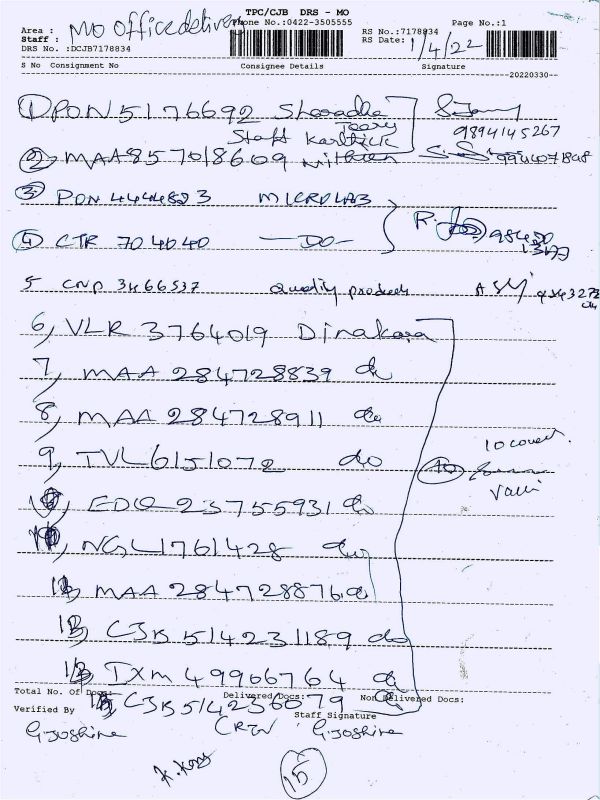 TPC/CJB DRS - MO
Area : MO office delivery Phone No.:0422-3505555 RS No.:7178834 Page No.:1
Staff :
DRS No. :DCJB7178834 RS Date: 1/4/22
S No Consignment No Consignee Details Signature
20220330--
1 PON 5176692 Sharadha
9894145267
Staff Karthick
2 MAA 857018609 Nithin 9994071848
3 PON 4444823 MICROLAB
4 CTR 704040 —DO—
5 CNP 3466537 Quality products
6, VLR 3764019 Dinakara
7, MAA 284728839 do
8, MAA 284728911 do
10 cover
9, TVL 6151072 do 10
Valli
10, EDQ 23755931 do
11, NGL 1761428 do
12, MAA 284728876 do
13, CJB 514231189 do
14, IXM 49906764 do
Total No. Of Docs: Delivered Docs: Non Delivered Docs:
15, CJB 514236079 do
Verified By Staff Signature
G.Joshine G.Joshine
15